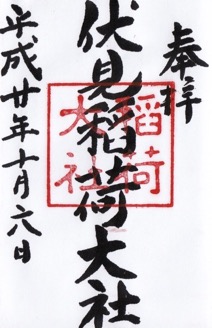 奉拝
伏見稲荷大社
稲荷
大社
平成廿年十月六日